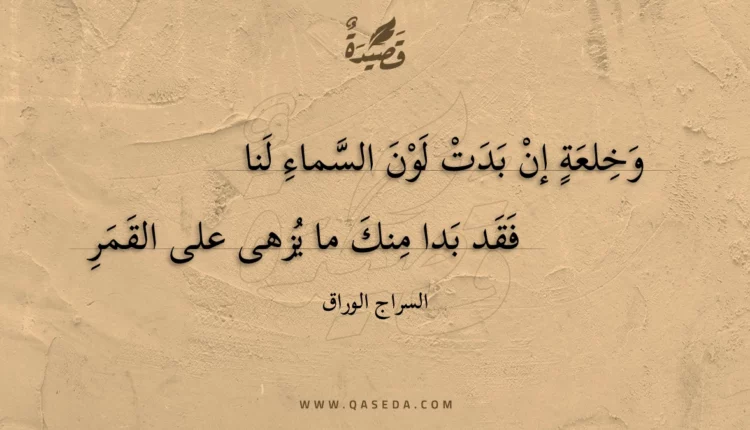 قَصِيْدَةٌ
وَخِلعَةٍ إنْ بَدَتْ لَوْنَ السَّماءِ لَنا
فَقَد بَدا مِنكَ ما يُزهى على القَمَرِ
السراج الوراق
WWW.QASEDA.COM